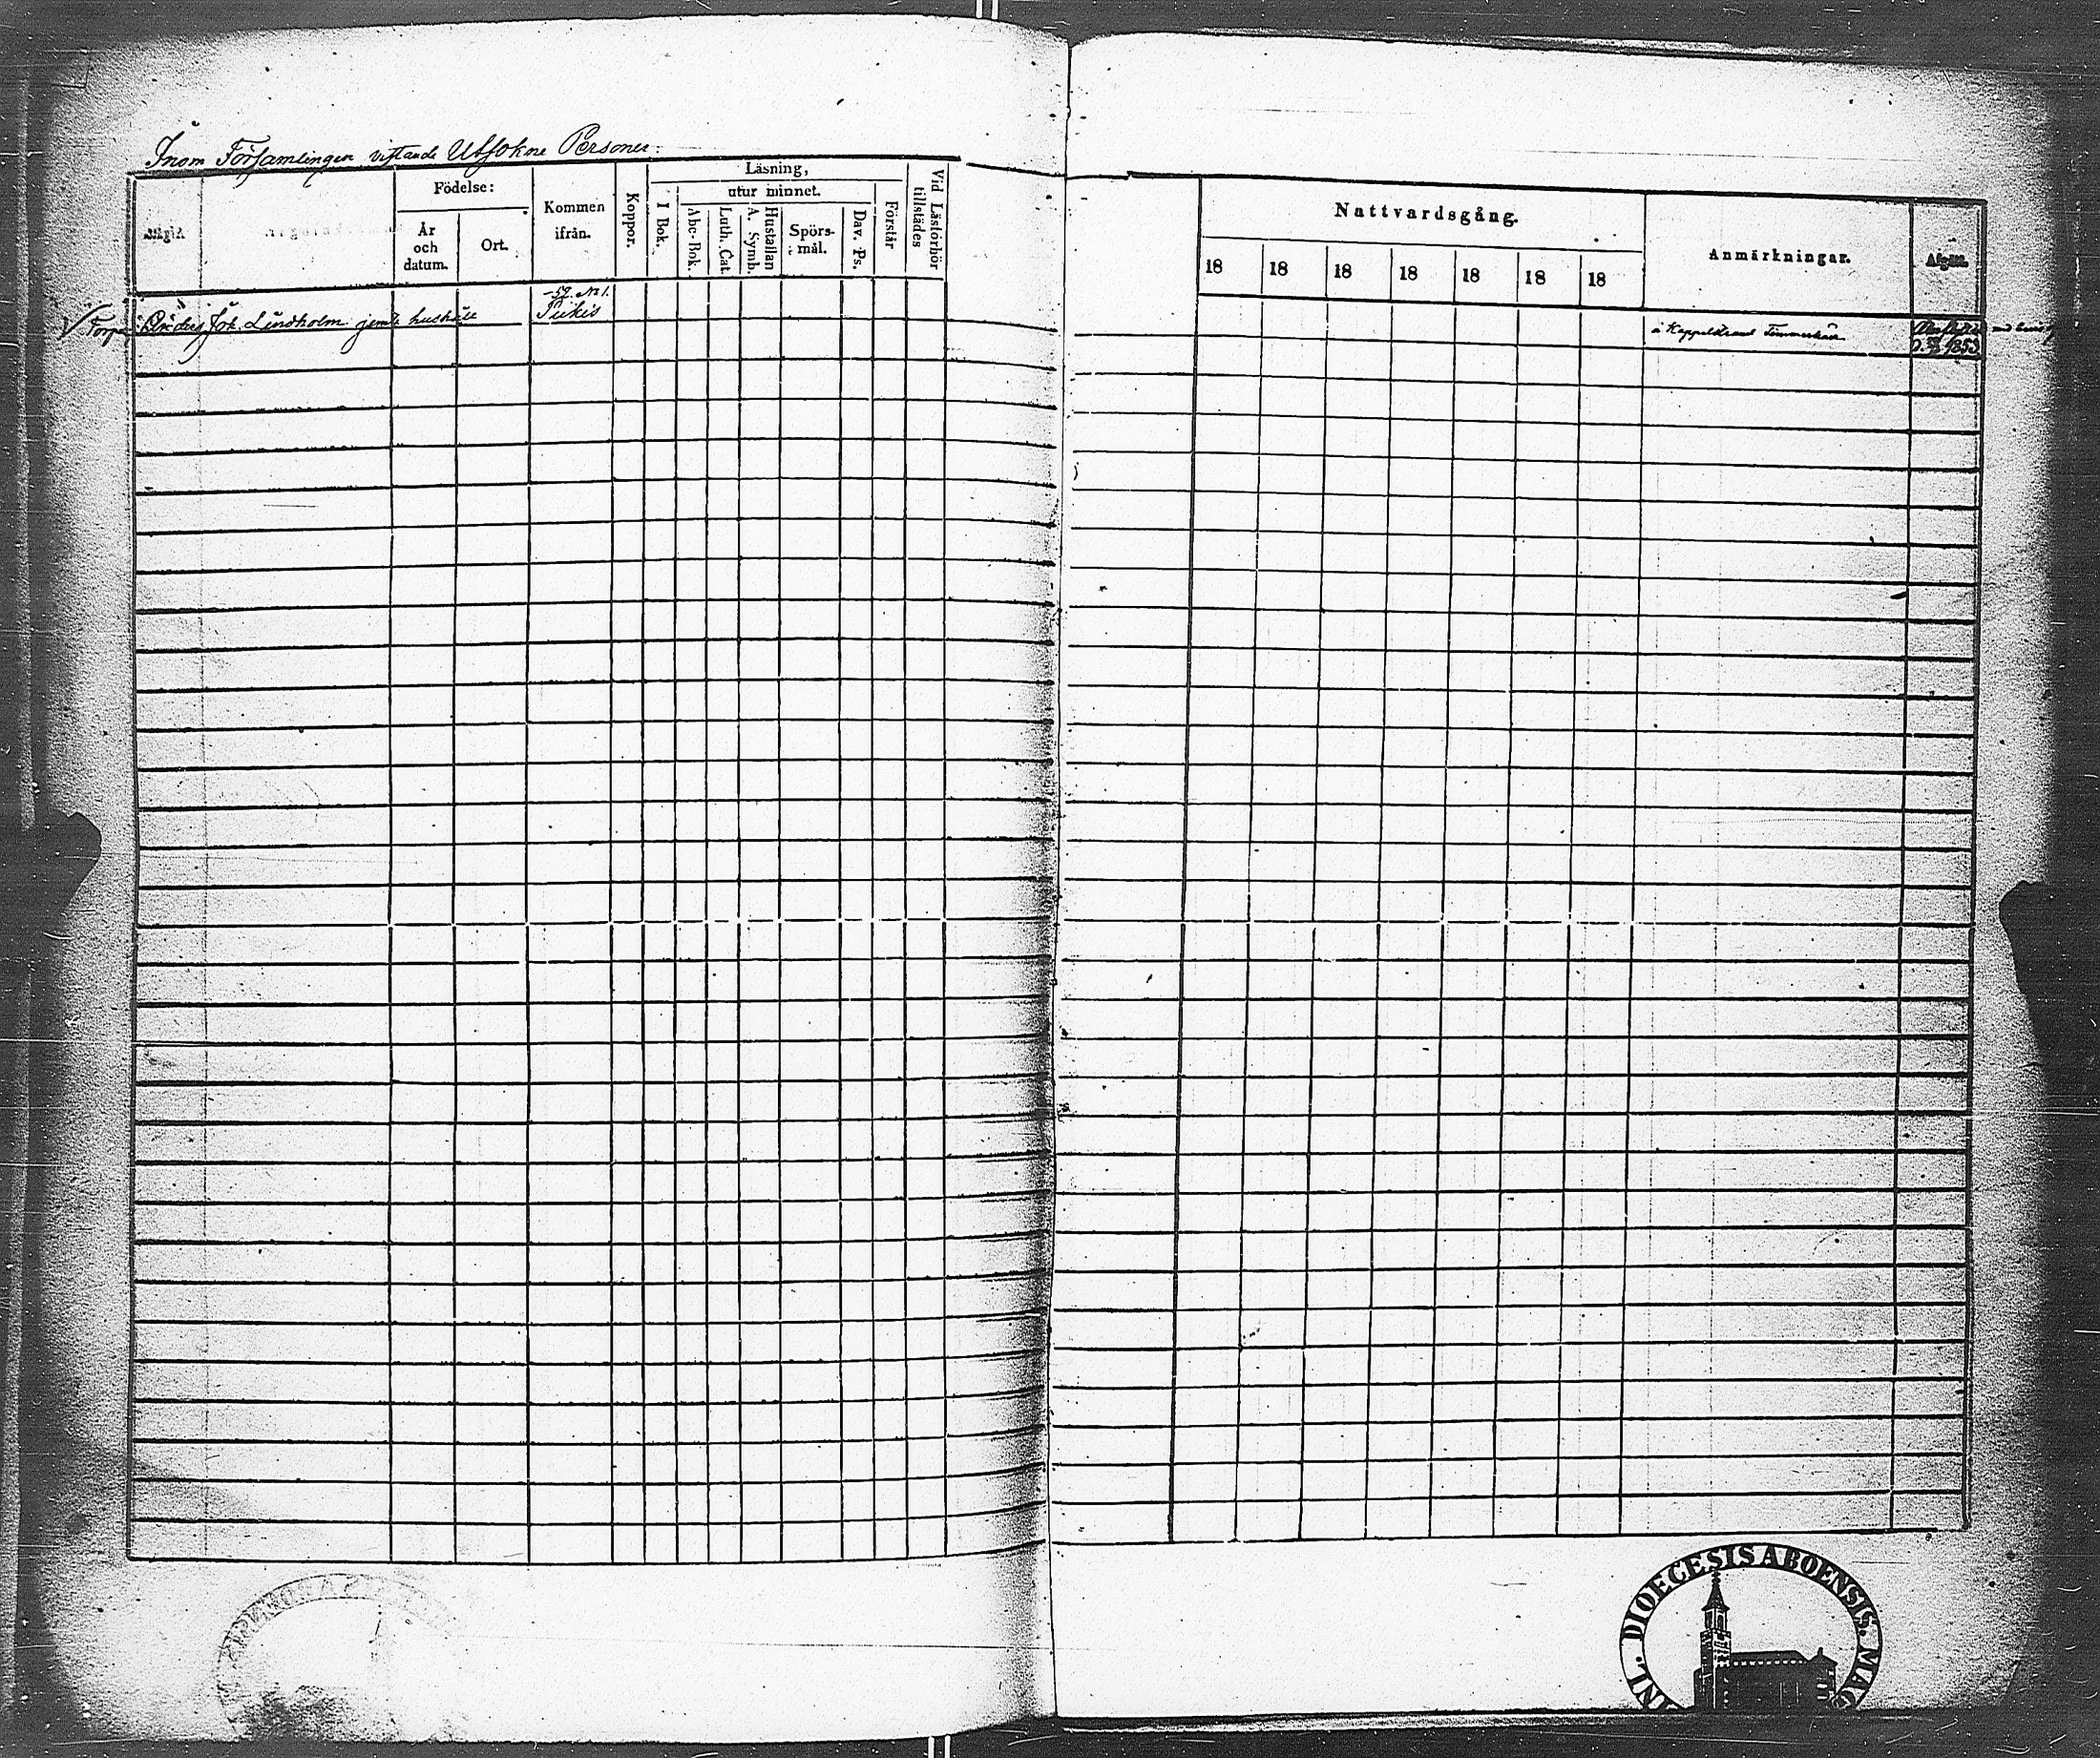 Inom Församlingen vistande Utsokne Personer.
Födelse:
År
och
datum.
Ort.
Kommen
ifrån.
Koppor.
Läsning,
I Bok.
utur minnet.
Abc-Bok.
Luth. Cat.
Hustaflan
A. Symb.
Spörs-
mål.
Dav. Ps.
Förstår
Vid Läsförhör
tillstädes
Nattvardsgång.
18 18 18 18 18 18 18
Anmärkningar.
Afgått.
-52. No 1.
Torp. Anders Joh. Lindholm jemte hushåll
Pikis
å Kappelstrand Timmerkarl
1853
DIOECESIS ABOENSIS. MAG